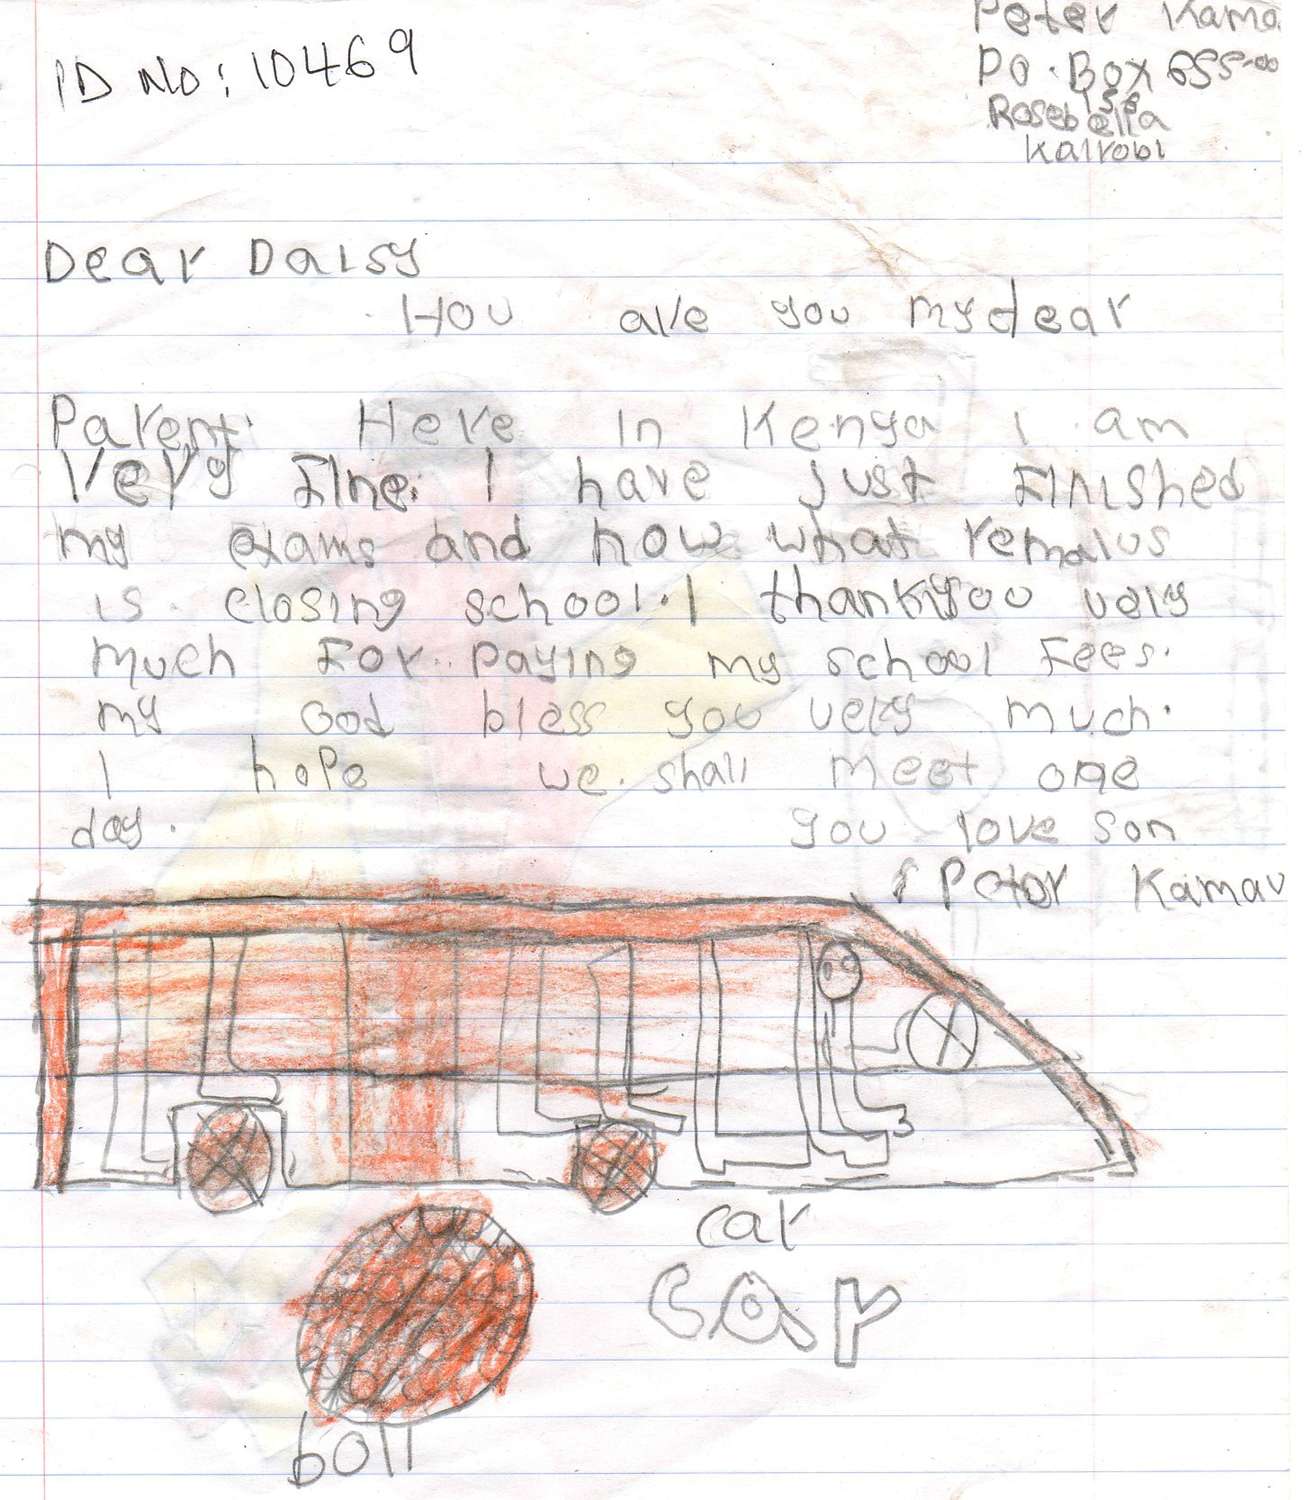 ID No: 10469
Peter Kama
PO. Box 655-00
Rosebella
Kairobi
Dear Daisy
How are you my dear
Parent. Here in Kenya I am
Very Fine. I have just Finished
my exams and now what remains
is closing school. I thankyou very
much For paying my school Fees.
my God bless you very much.
I hope we shall meet one
day. you love son
Peter Kamau
car
car
boll